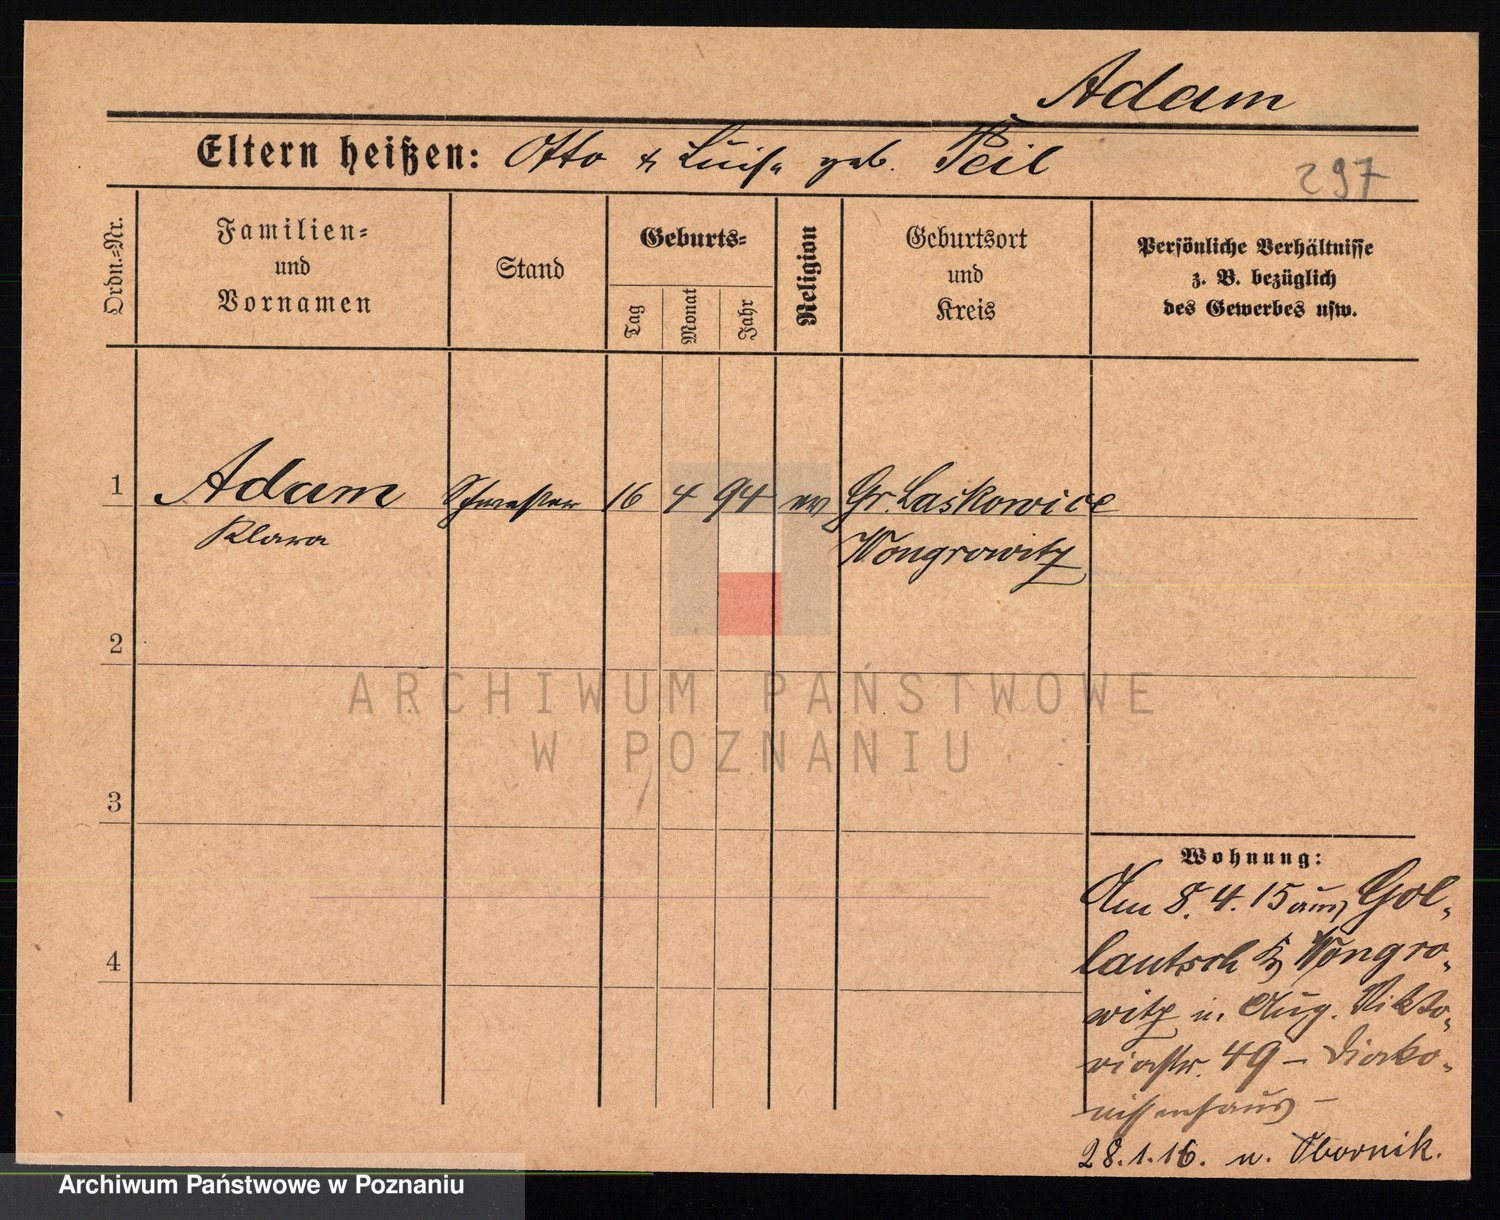 Adam
Eltern heißen: Otto & Luise geb. Peil
297
Ordn.-Nr.
Familien-
und
Vornamen
Stand
Geburts-
Tag
Monat
Jahr
Religion
Geburtsort
und
Kreis
Persönliche Verhältnisse
z. B. bezüglich
des Gewerbes usw.
1 Adam Schwester 16 4 94 ev Gr. Laskowice
Klara Wongrowitz
2
ARCHIWUM PAŃSTWOWE
W POZNANIU
3
4
Wohnung:
Am 8. 4. 15 aus Gol-
lantsch Kr Wongro-
witz in Aug. Vikto-
riastr. 49 – Diako-
nissenhaus –
28.1.16. n. Obornik.
Archiwum Państwowe w Poznaniu